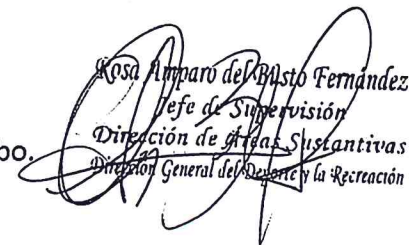 Rosa Amparo del Busto Fernández
Jefe de Supervisión
Dirección de Áreas Sustantivas
Dirección General del Deporte y la Recreación
bo.